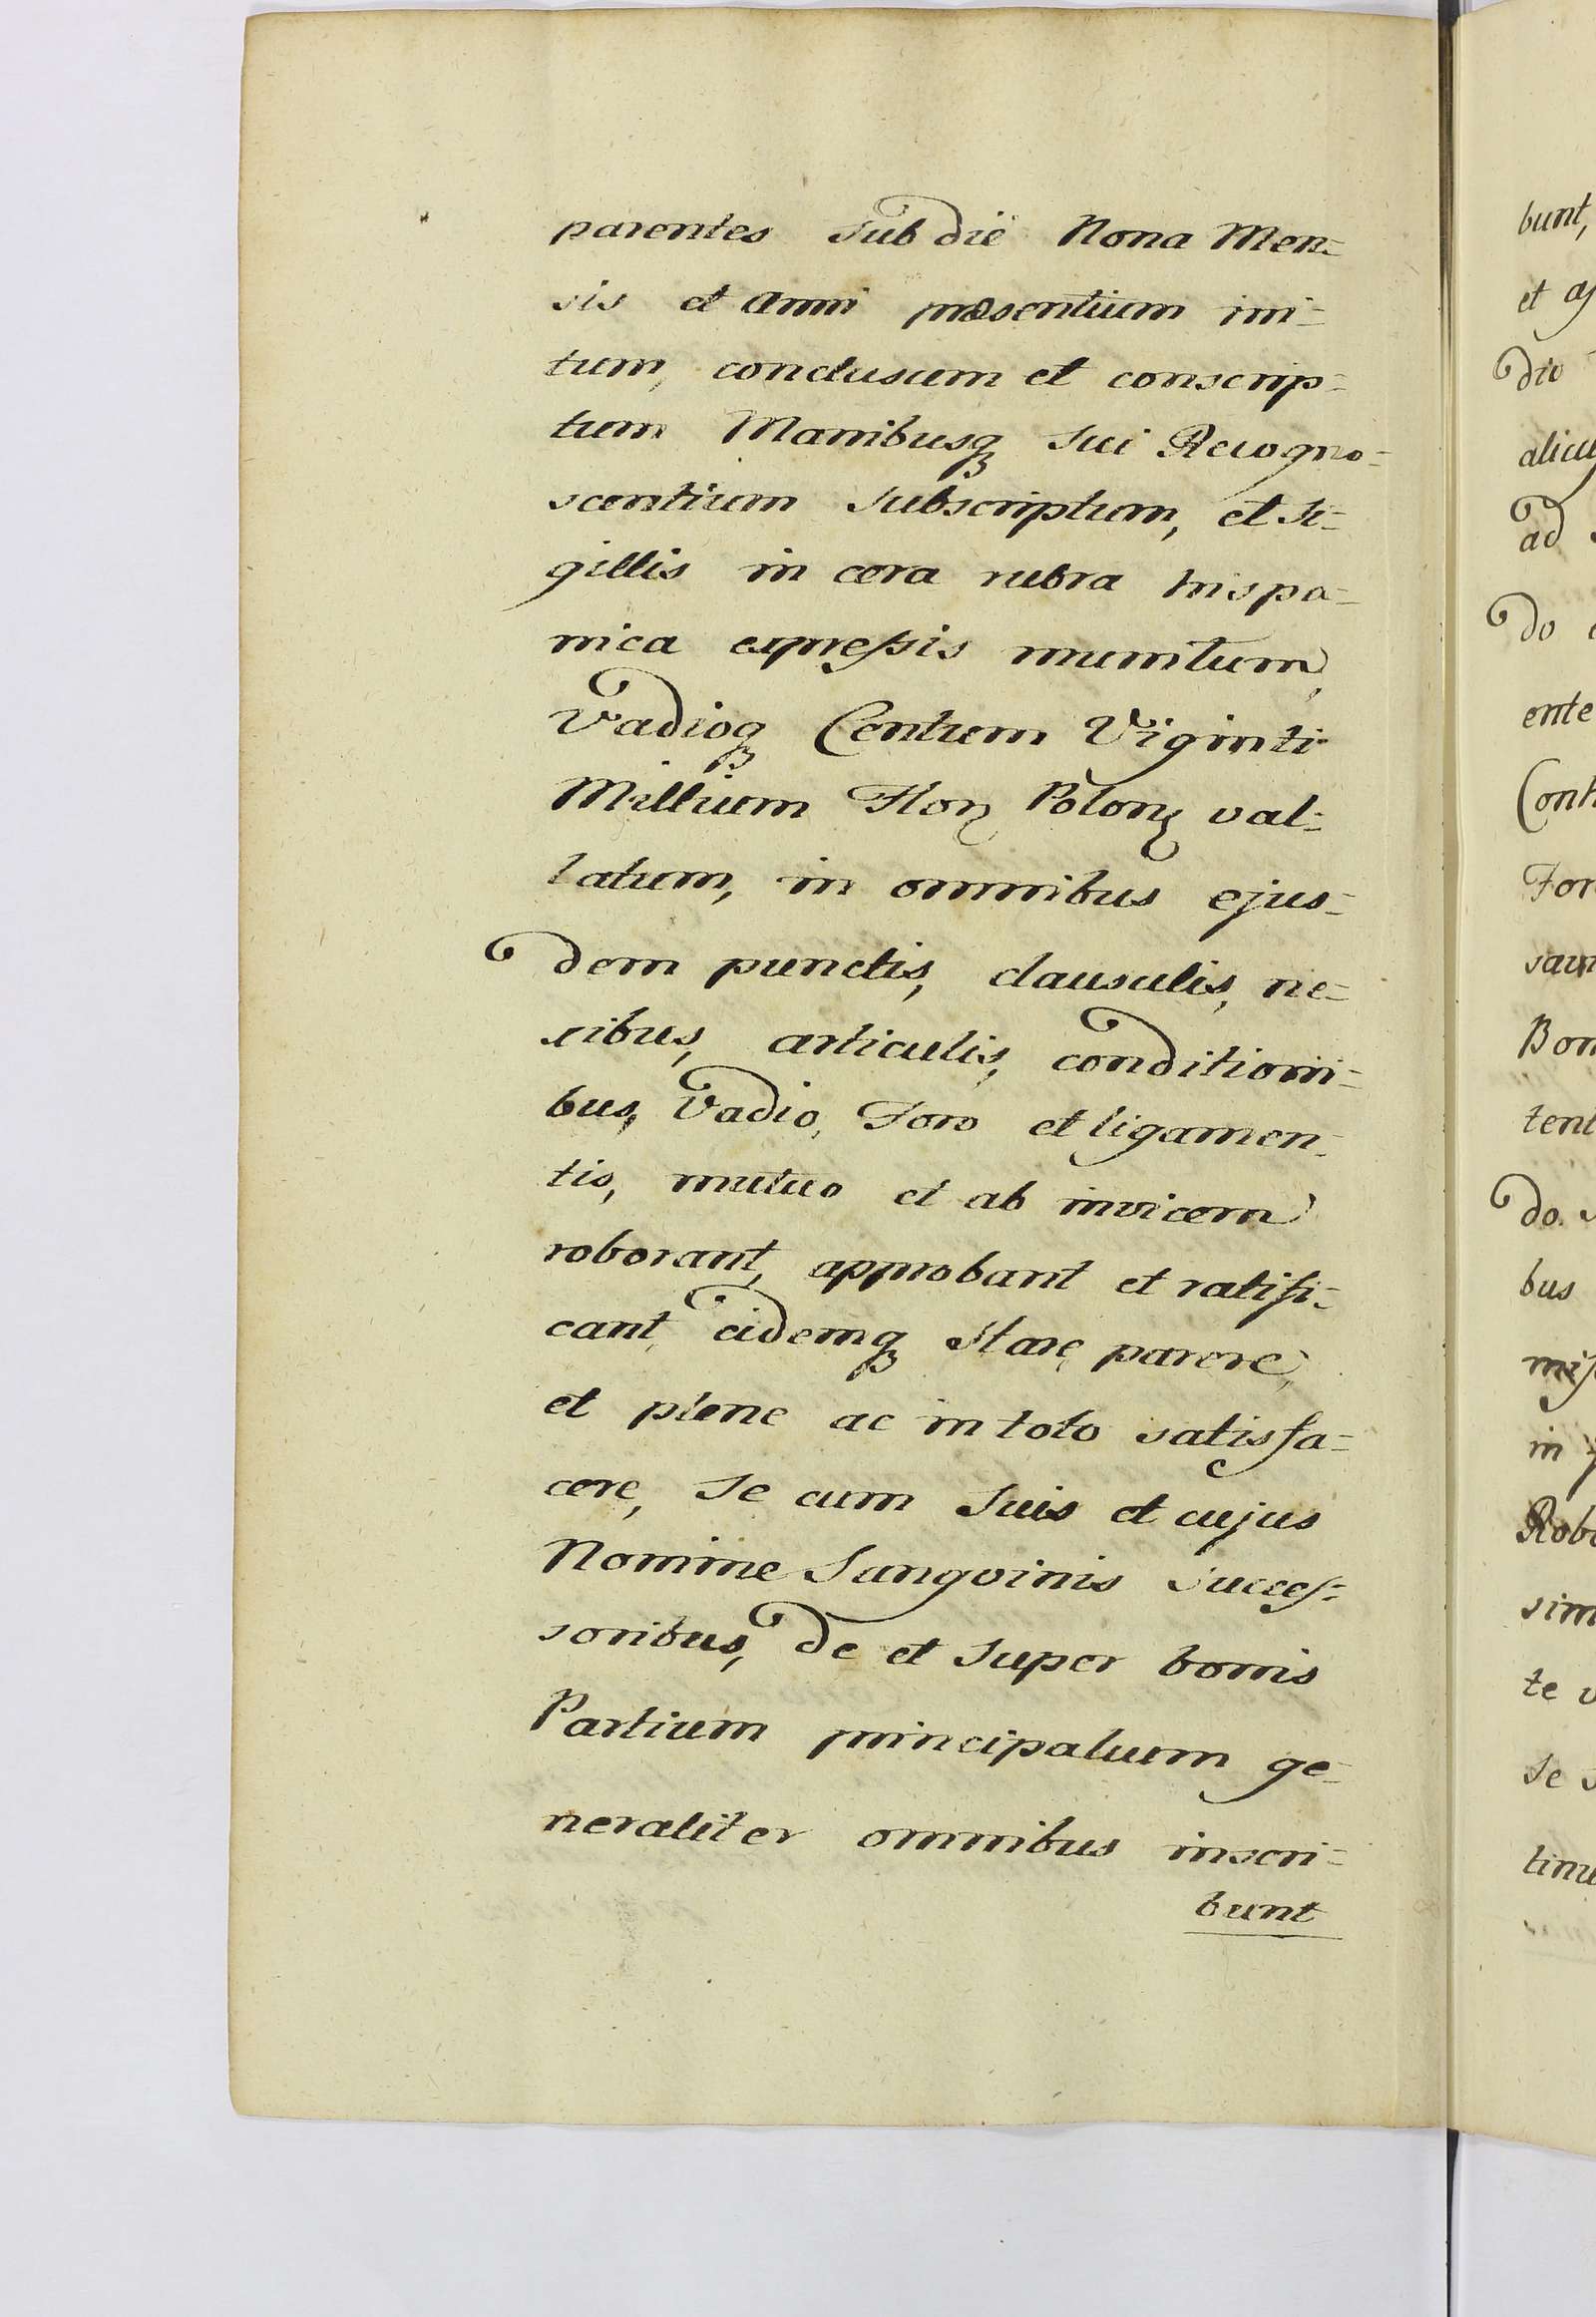 parentes Sub die Nona Men=
sis et Anni præsentium ini=
tum, conclusum et conscrip=
tum Manibusq Sui Recogno=
scentium Subscriptum, et Si=
gillis in cera rubra hispa=
nica expressis munitum,
Vadioq Centum Viginti
Millium Flor Polon val=
latum, in omnibus ejus=
dem punctis, clausulis, ne=
xibus, articulis, conditioni=
bus, Vadio, Foro et ligamen=
tis, mutuo et ab invicem
roborant, approbant et ratifi=
cant, eidemq Stare, parere,
et plene ac in toto satisfa=
cere, Se cum Suis et cujus
Nomine Sangvinis Succes=
soribus, de et Super bonis
Partium principalium ge=
neraliter omnibus inscri=
bunt
bunt,
et
dio
alicu
ad
do
ente
Cont
For
Bon
tent
do
bus
in
Robo
sim
te
Se